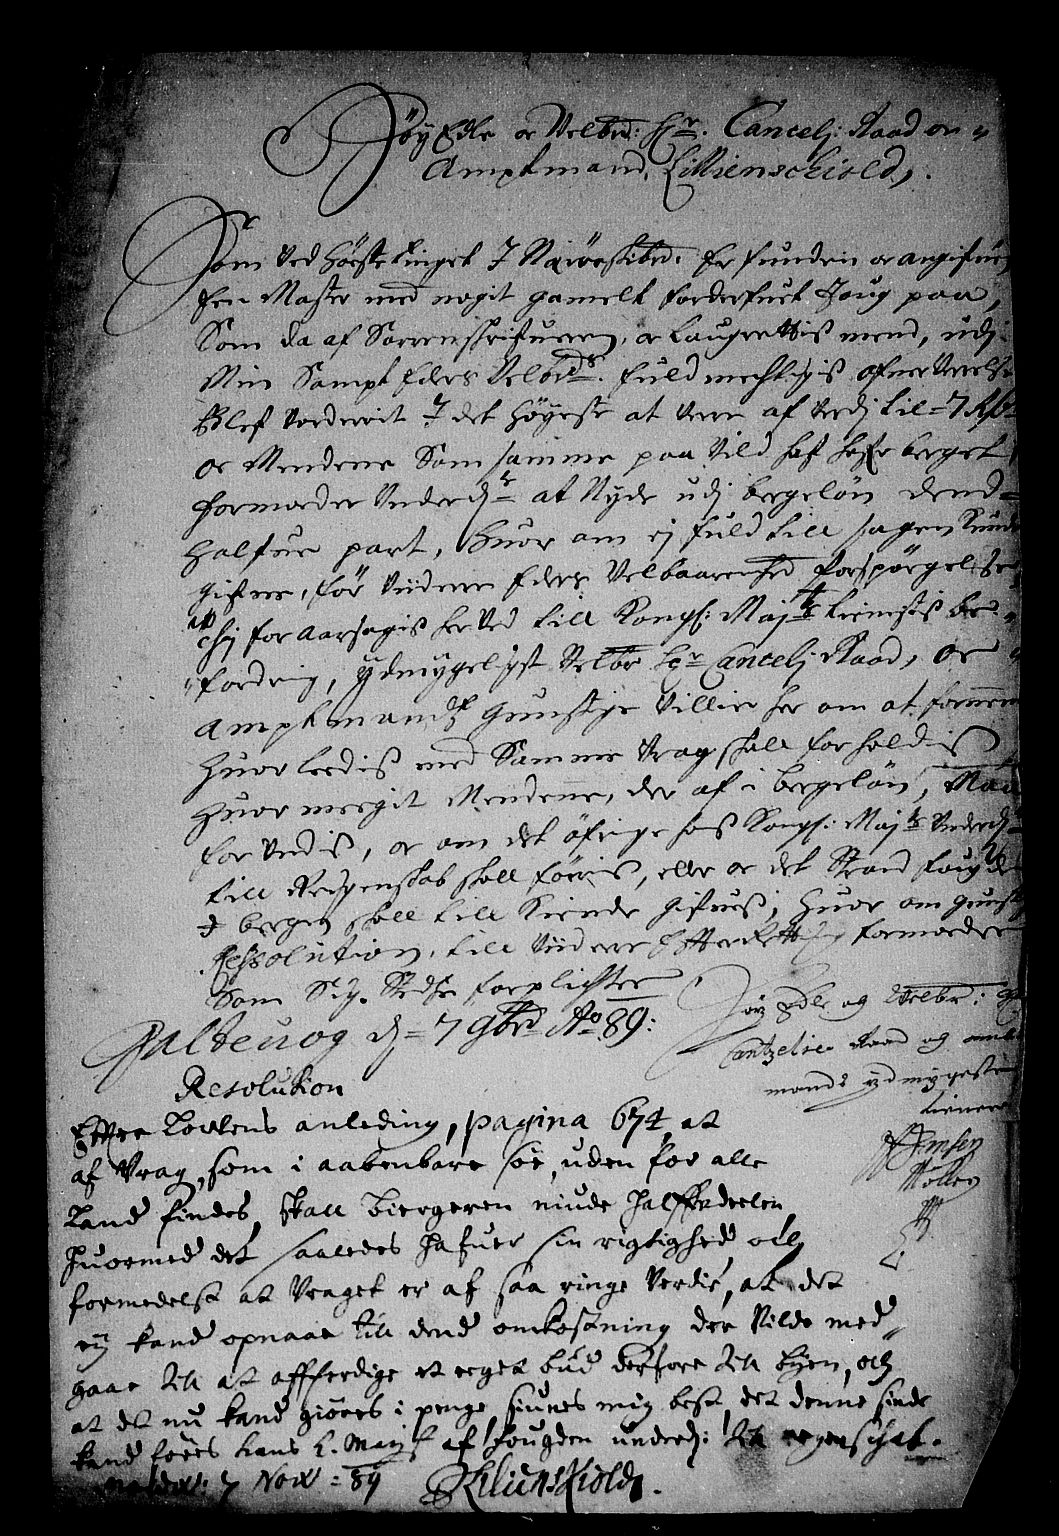 Höy Edle oc Velbr: Hr. Cancelj: Raad oc
Amptmand, Lillienschiold,.
Som Ved Höste tinget I er funden oc angifuen
Een Master med nogit gamelt forderfuet Toug paa,
Som da af Sorrenskrifueren, oc Laugrettis mend, udj
Min Sampt Eders Velbrds. fuldmechtigis ofuerverelse
Blef Vorderit I det höyeste at vere af verdj til = 7 Rdr
oc Mendene Som samme paa Vild haf hafr berget,
formoeder Underdn. at Nyde udj bergelön dend
halfue part, Huor om ej fuld till sagen kunde
gifues, för Viidere Eders Velbaarenhed forspörgelse
for aarsagis her Ved till Kongl: Maytz tienistis be =
fordring, ydmygeligst Velbr Hr Cancelj Raad, oc
Amptmandz Gunstige Villie her om at fornemme
Huorledis med Samme Vrag skall forholdis
Huor meegit Mendene, der af i bergelön, Maa
forundis, oc om det öfrige hos Kongl: Maytz Underdn
till Regenskab skall föris, eller oc det Strand fougden
I bergen skall till kiende gifues, Huor om gunstig
Ressolution, till Viidere Efterrettning formoeder
Som Sig. Stedse forplichter
Gulteuog d = 7 9brs Ao 89:
Höy Edle og Welbr: Hr
Cantzelie Raad og ambt
mands ydmygeste
tienere
Jensen
Möller
Resolution
Effter Lovens anleding, pagina 674 at
af Vrag, som i aabenbare söe, uden for alle
Land findes, skall biergeren niude halffvdeelen,
huormed det saaledes hafuer sin rigtighed och
formedelst at Vraget er af saa ringe Verdie, at det
eij kand opnaae till dend omkostning der Vilde med
gaae till at affferdige et eeget bud derfore till byen, och
at det nu kand giöres i penge siunes mig best det denne sinde
kand föres hans K. Mayst af fougden underdj: till regenschab.
7 Nov: 89 Lilienskiold.